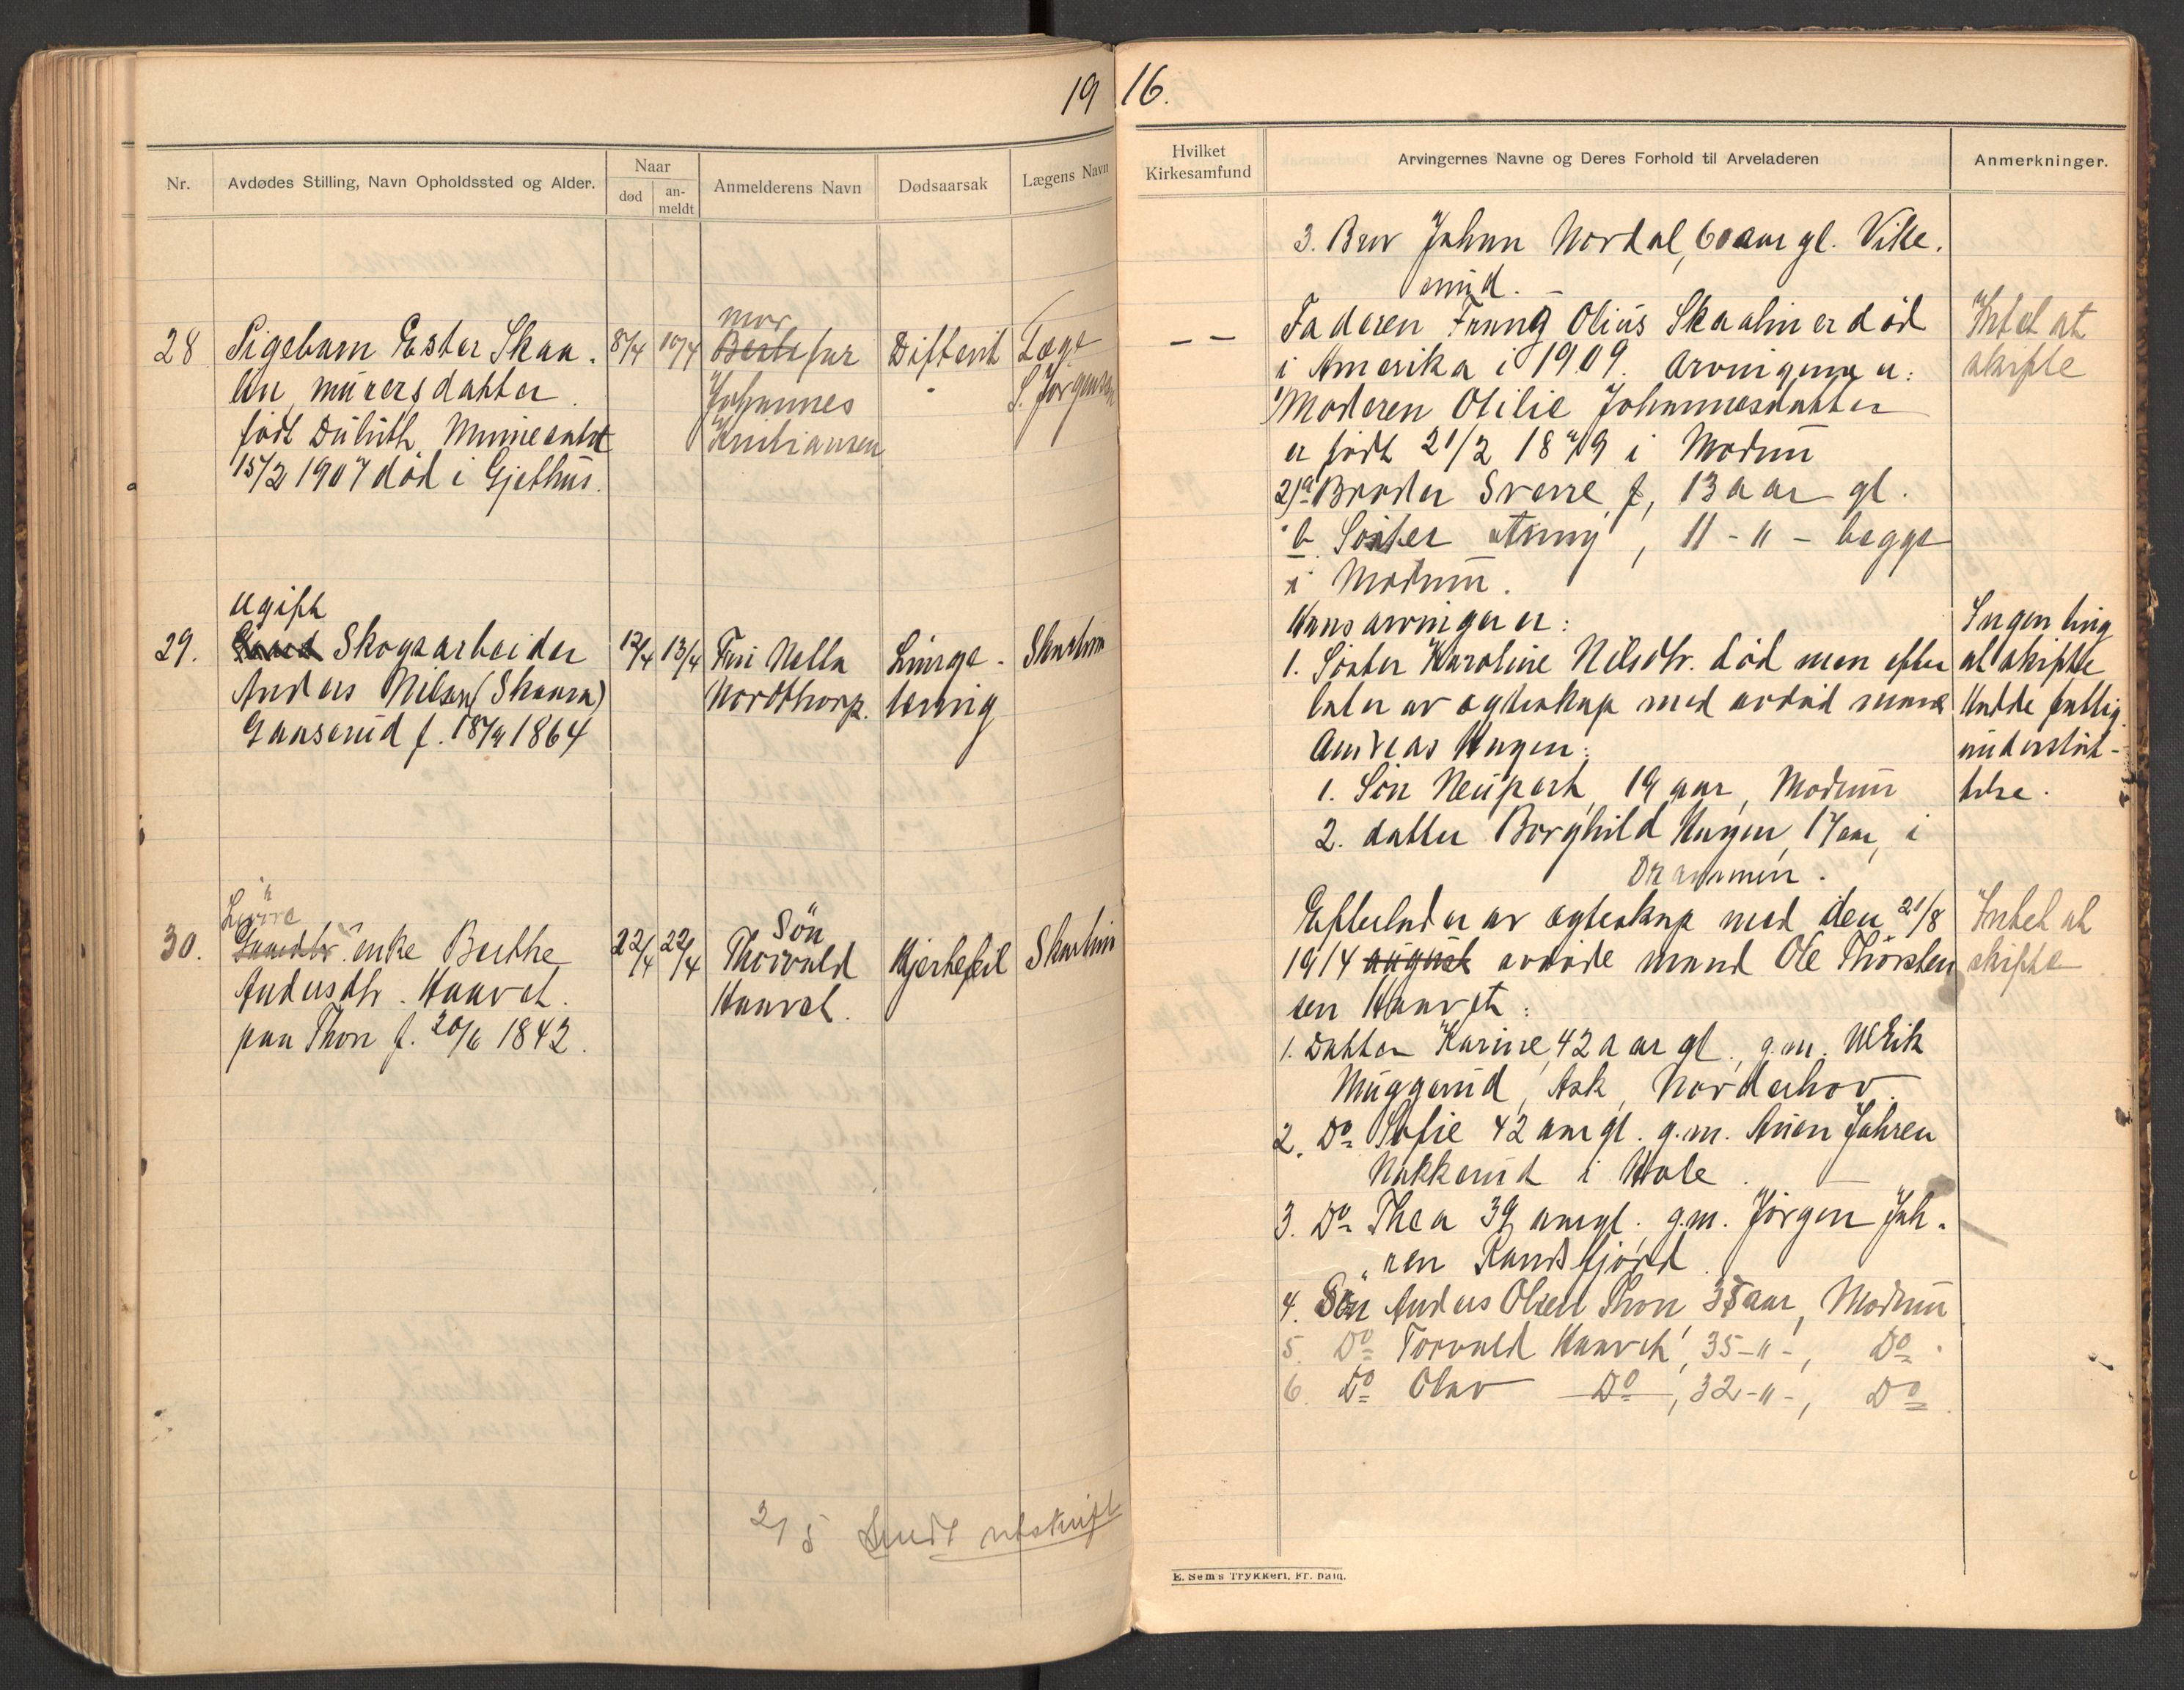 19 16.
Nr.
Avdødes Stilling, Navn Opholdssted og Alder.
Naar
død
an-
meldt
Anmelderens Navn
Dødsaarsak
Lægens Navn
28
Pigebarn Ester Skaa-
lin, murersdatter
født Duluth,
15/2 1907 død i Gjethus.
8/4
10/4
mor
far
Johannes
Kristiansen
Difterit
Læge
S. Jørgensen
29.
ugift
Skogsarbeider
Anders Nilsen (Skaara)
Gaaserud f. 1864
12/4
13/4
Nella
Nordthorp.
Lunge-
Skaalin
30.
enke Berthe
Andersdtr. Haavet.
paa Thon f. 20/6 1842.
22/4
22/4
Søn
Thorvald
Haavet.
Hjertefeil
Skaalin
2/5 Sendt utskrift
Hvilket
Kirkesamfund
Arvingernes Navne og Deres Forhold til Arveladeren
Anmerkninger.
3. Bror Johan Nordal, 60 aar gl. Vike-
sund. -
- -
Faderen Olius Skaalin er død
i Amerika i 1909. Arvingerne er:
Moderen Otilie Johannesdatter
er født 21/2 1879 i Modum
2) a Broder Sverre f, 13 aar gl.
b. Søster Anny, 11 - " - begge
i Modum.
Intet at
skifte
Hans arvinger er:
1. Søster Karoline Nilsdtr. død men efter
later av egteskap med avdød mand
Andreas Haugen:
1. Søn Neupert, 19 aar, Modum
2. datter Borghild Haugen, 17 aar, i
Drammen.
Ingen ting
at skifte
Hadde fattig-
understøt-
telse.
Efterlader av egteskap med den 21/8
1914 august avdøde mand Ole Thorsten
sen Haavet:
1. Datter Karine, 42 aar gl., g.m. Ulrik
Muggerud, Ask, Norderhov.
2. Do Sofie 42 aar gl. g.m. Jahren
Nakkerud i Hole.
3. Do Thea 39 aar gl. g.m. Jørgen Jah-
ren Randsfjord.
4. Søn Anders Olsen Thon, 38 aar, Modum
5. Do Torvald Haavet, 35 - " -, Do.
6. Do Olav Do, 32 - " -, Do.
Intet at
skifte
E. Sem's Trykkeri, Fr. hald.